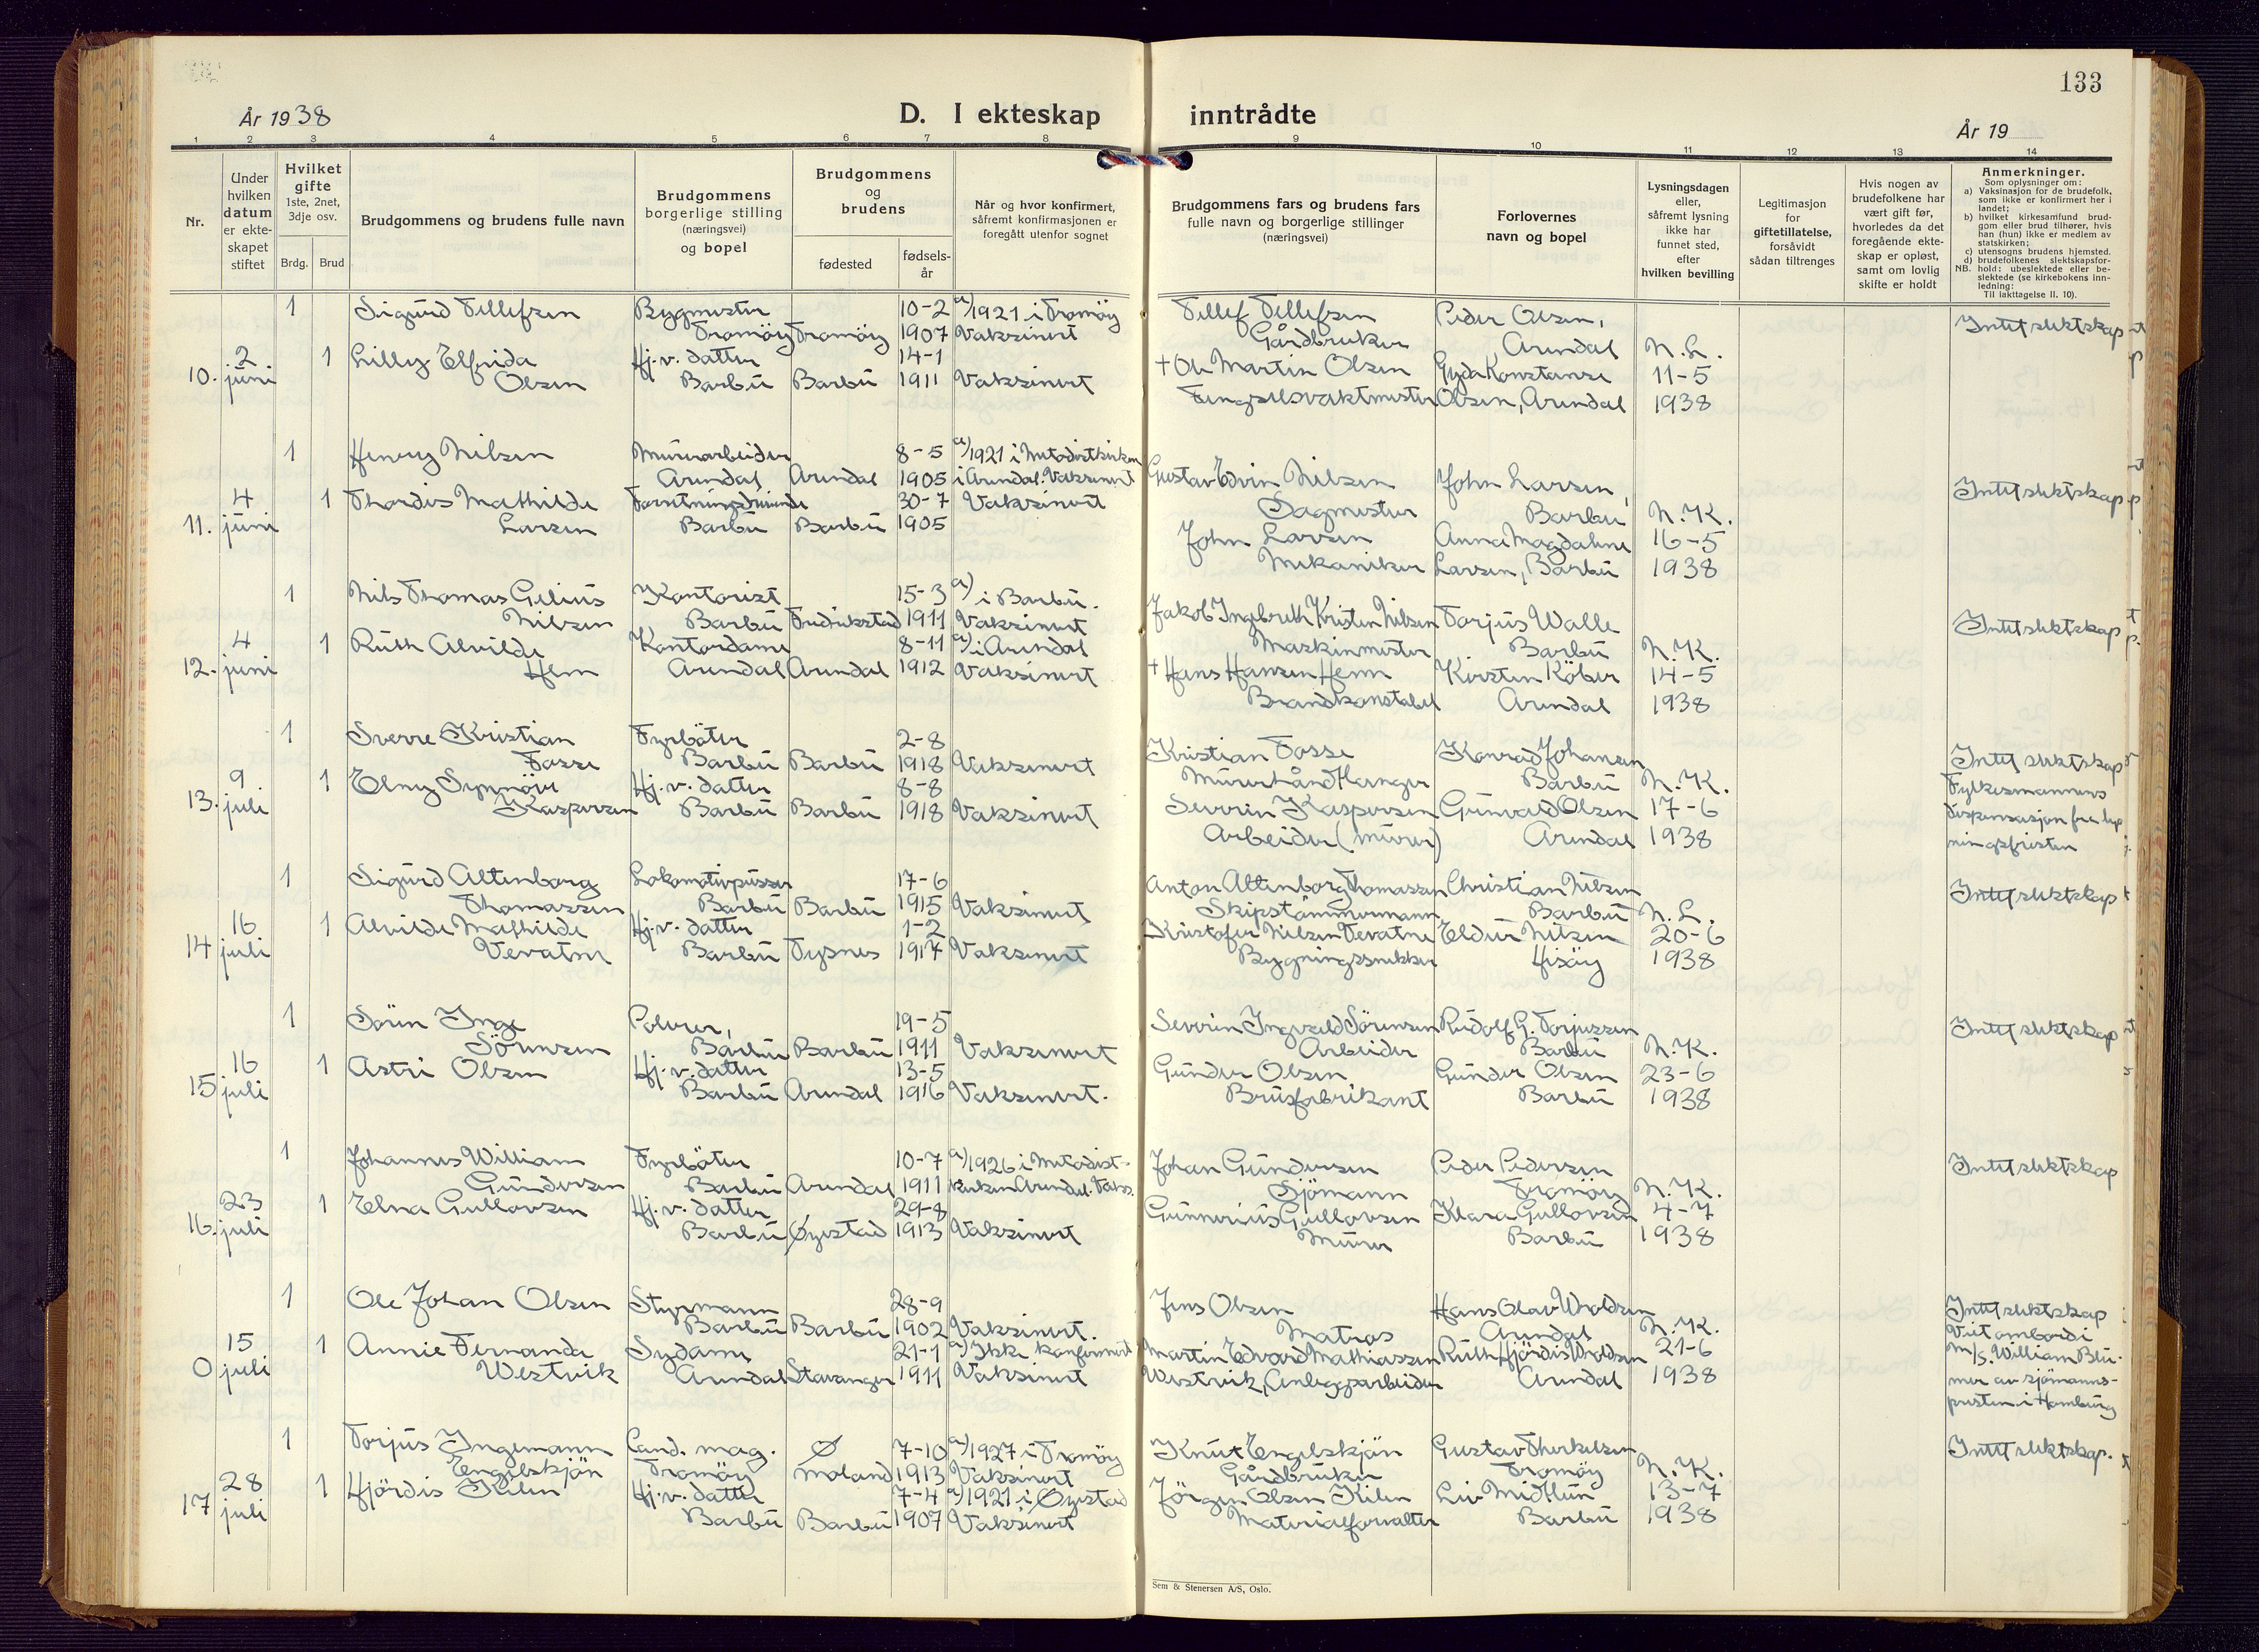 133
År 1938
D. I ekteskap inntrådte
År 19
1 2 3 4 5 6 7 8 9 10 11 12 13 14
Nr.
Under hvilken datum er ekteskapet stiftet
Hvilket gifte 1ste, 2net, 3dje osv.
Brdg. Brud
Brudgommens og brudens fulle navn
Brudgommens borgerlige stilling (næringsvei) og bopel
Brudgommens og brudens
fødested
fødsels-år
Når og hvor konfirmert, såfremt konfirmasjonen er foregått utenfor sognet
Brudgommens fars og brudens fars fulle navn og borgerlige stillinger (næringsvei)
Forlovernes navn og bopel
Lysningsdagen eller, såfremt lysning ikke har funnet sted, efter hvilken bevilling
Legitimasjon for giftetillatelse, forsåvidt sådan tiltrenges
Hvis nogen av brudefolkene har vært gift før, hvorledes da det foregående ekteskap er opløst, samt om lovlig skifte er holdt
Anmerkninger.
Som oplysninger om:
a) Vaksinasjon for de brudefolk, som ikke er konfirmert her i landet;
b) hvilket kirkesamfund brudgom eller brud tilhører, hvis han (hun) ikke er medlem av statskirken;
c) utensogns brudens hjemsted.
d) brudefolkenes slektskapsforhold: ubeslektede eller beslektede (se kirkebokens innledning:
NB.
Til iakttagelse II. 10).
1 Sigurd Tellefsen Bygmester 10-2 a) 1921 i Tromøy Tellef Tellefsen Peder Olsen, Intet slektskap
Tromøy Tromøy 1907 Vaksinert Gårdbruker Arendal N.L.
2 1 Lilly Elfrida Hj.v. datter 14-1 + Ole Martin Olsen Gyda Konstanse 11-5
10. juni Olsen Barbu Barbu 1911 Vaksinert Fengselsvaktmester Olsen, Arendal 1938
1 Henry Nilsen Murerarbeider 8-5 a) 1921 i Metodistkirken Gustav Edvin Nilsen John Larsen, Intet slektskap
Arendal Arendal 1905 i Arendal. Vaksinert Sagmester Barbu N.K.
4 1 Thordis Mathilde Forretningsdrivende 30-7 Vaksinert John Larsen Anna Magdalene 16-5
11. juni Larsen Barbu Barbu 1905 Mekaniker Larsen, Barbu 1938
1 Nils Thomas Gelius Kontorist 15-3 a) i Barbu. Jakob Ingebreth Kristen Nilsen Torjus Walle Intet slektskap
Nilsen Barbu Fredrikstad 1911 Vaksinert Maskinmester Barbu N.K.
4 1 Ruth Alvilde Kontordame 8-11 a) i Arendal + Hans Hansen Hem Kirsten Köber 14-5
12. juni Hem Arendal Arendal 1912 Vaksinert Brandkonstabel Arendal 1938
1 Sverre Kristian Fyrböter 2-8 Kristian Fosse Konrad Johansen Intet slektskap
Fosse Barbu Barbu 1918 Vaksinert Murerhåndlanger Barbu N.K. Fylkesmannens
9 1 Elny Synnöve Hj.v. datter 8-8 Severin Kaspersen Grünvald Olsen 17-6 dispensasjon fra lys
13. juli Kaspersen Barbu Barbu 1918 Vaksinert Arbeider (murer) Arendal 1938 ningsfristen
1 Sigurd Altenborg Lokomotivpusser 17-6 Anton Altenborg Thomassen Christian Nilsen Intet slektskap
Thomassen Barbu Barbu 1915 Vaksinert Skipstömmermann Barbu N.L.
16 1 Alvilde Mathilde Hj.v. datter 1-2 Kristofer Nilsen Vevatne Eldur Nilsen 20-6
14 juli Vevatne Barbu Tysnes 1917 Vaksinert Bygningssnekker Hisöy 1938
1 Sören Inge Polerer, 19-5 Severin Ingvald Sörensen Rudolf G. Torjussen Intet slektskap
Sörensen Barbu Barbu 1911 Vaksinert Arbeider Barbu N.K.
16 1 Astri Olsen Hj.v. datter 13-5 Gunder Olsen Gunder Olsen 23-6
15 juli Barbu Arendal 1916 Vaksinert. Brusfabrikant Barbu 1938
1 Johannes William Fyrböter 10-7 a) 1926 i Metodist- Johan Gundersen Peder Pedersen Intet slektskap
Gundersen Barbu Arendal 1911 kirken Arendal. Vaks. Sjömann Tromöy N.K.
23 1 Elna Gullovsen Hj.v. datter 29-8 Gunnerius Gullovsen Klara Gullovsen 4-7
16. juli Barbu Øyestad 1913 Vaksinert Murer Barbu 1938
1 Ole Johan Olsen Styrmann 28-9 Jens Olsen Hans Olav Woldsen Intet slektskap
Barbu Barbu 1902 Vaksinert. Matros Arendal N.K. Viet ombord i
15 1 Annie Fernanda Sydame 21-1 a) Ikke konfirmert Martin Edvard Mathiassen Ruth Hjördis Woldsen 21-6 M/S. William Blu-
0 juli Westvik Arendal Stavanger 1911 Vaksinert Westvik, Anleggsarbeider Arendal 1938 mer av sjömanns-
presten i Hamburg
1 Torjus Ingemann Cand. mag. Ø 7-10 a) 1927 i Tromöy Knut Engelskjön Gustav Therkelsen Intet slektskap.
Engelskjön Tromöy Moland 1913 Vaksinert Gårdbruker Tromöy N.K.
28 1 Hjördis Kilen Hj.v. datter 7-4 a) 1921 i Øyestad Jörgen Olsen Kilen Liv Midtlun 13-7
17 juli Barbu Barbu 1907 Vaksinert Materialforvalter Barbu 1938
Sem & Stenersen A/S, Oslo.